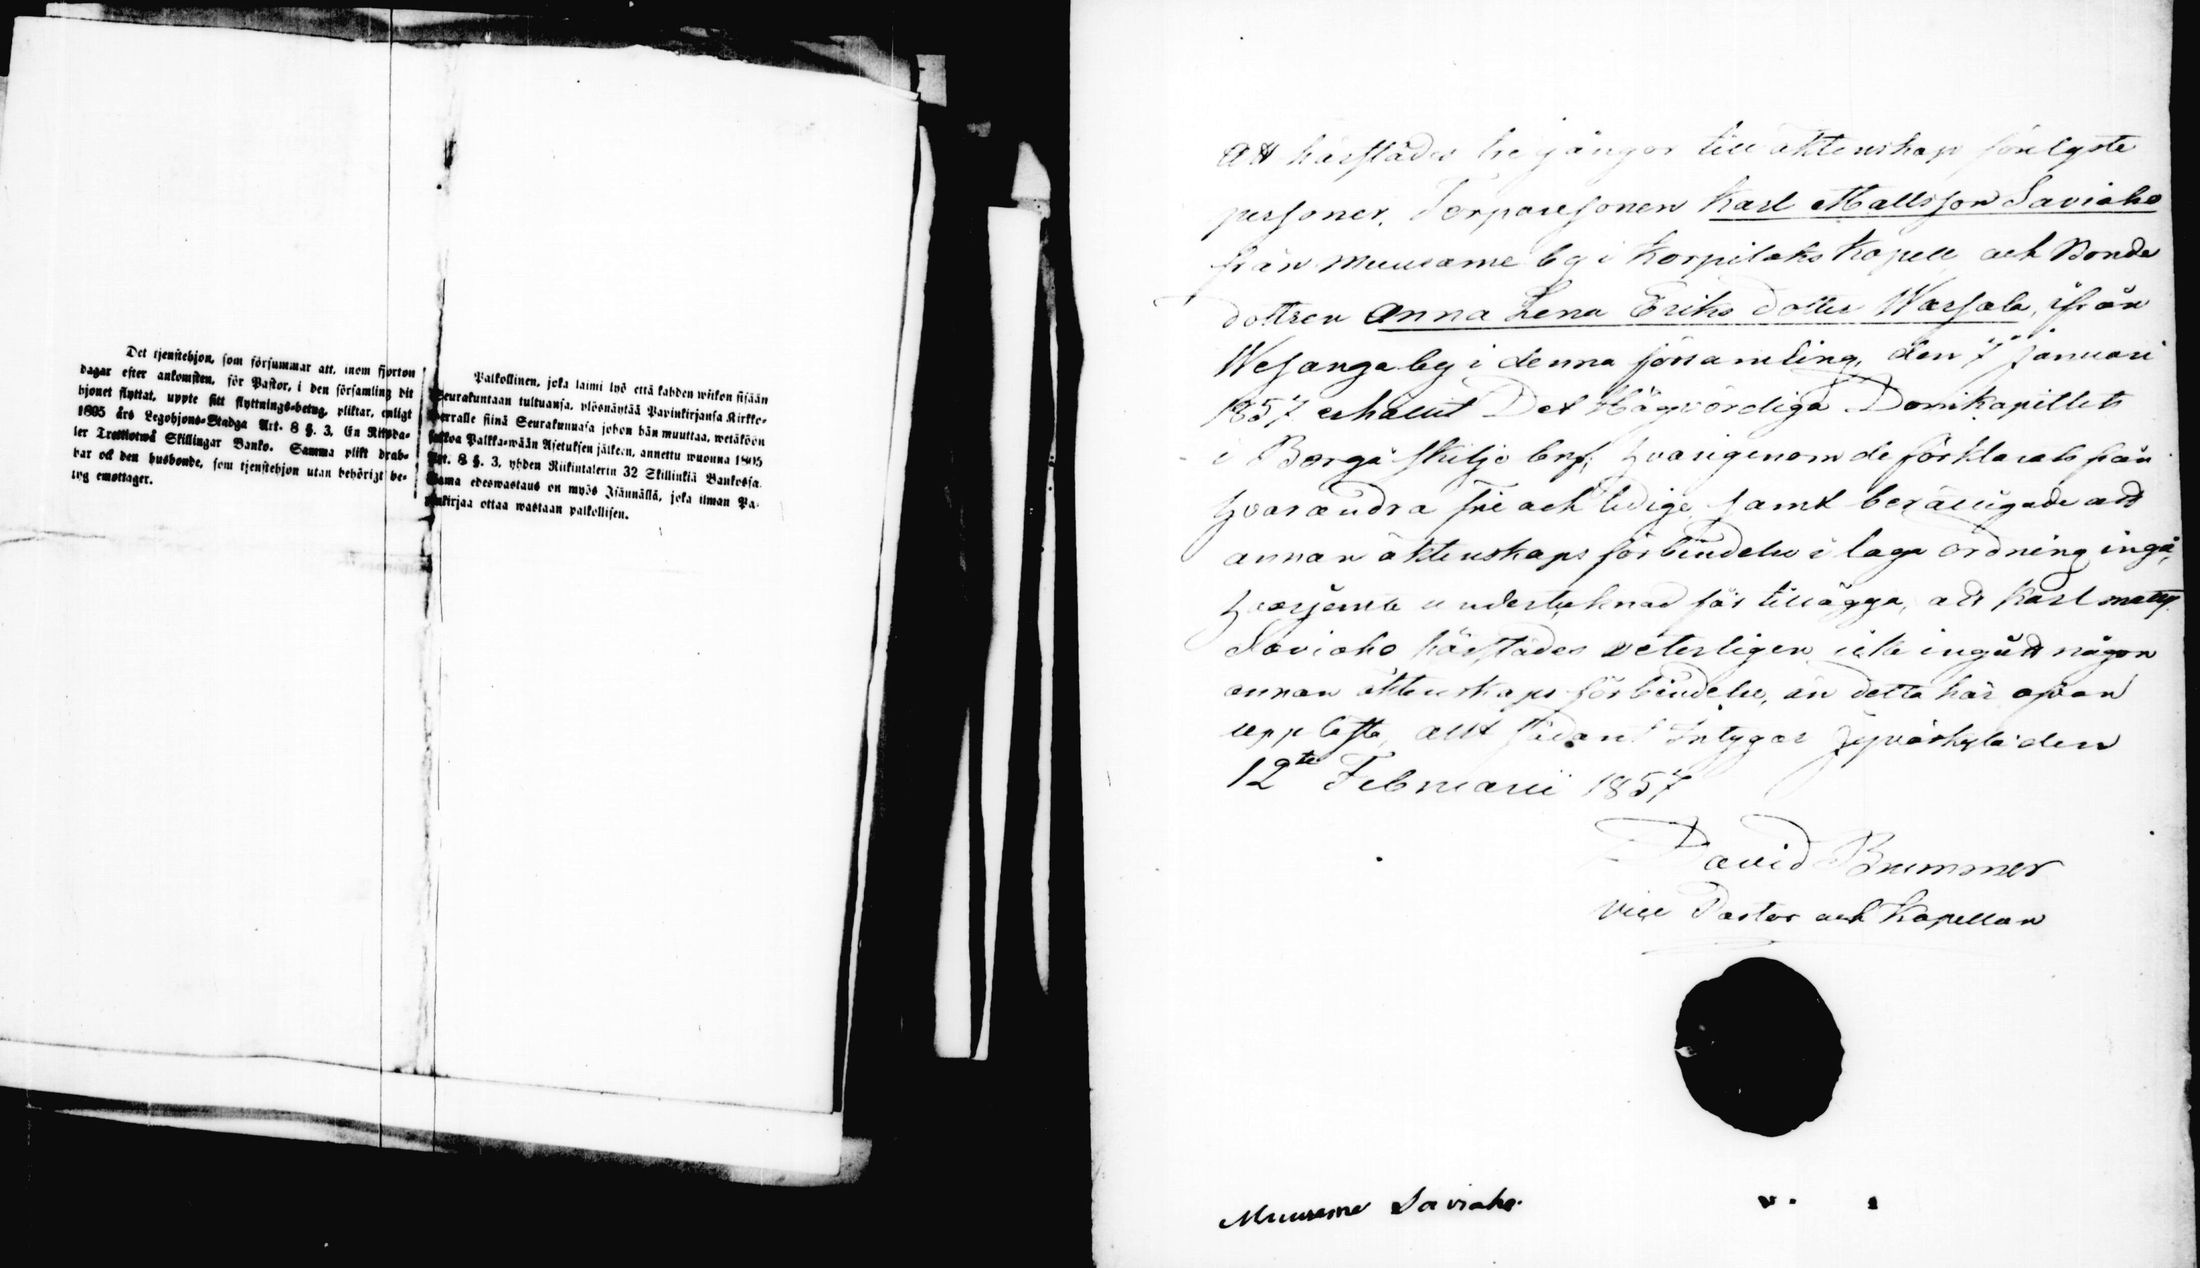 Det tjenstehjon, som försummar att, inom fjorton
dagar efter ankomsten, för Pastor, i den församling dit
hjonet flyttat, uppte sitt flyttnings-betyg, pliktar, enligt
1805 års Legohjons-Stadga Art. 8 §. 3. En Riksda-
ler Trettiotwå Skillingar Banko. Samma plikt drab-
bar ock den husbonde, som tjenstehjon utan behörigt be-
tyg emottager.
Palkollinen, joka laimi lyö että kahden wiikon sisään
Seurakuntaan tultuansa, ylösnäyttää Papinkirjansa Kirkko-
herralle siinä Seurakunnasa johon hän muuttaa, wetäköön
sakkoa Palkka-wään Asetuksen jälkeen, annettu wuonna 1805
Art. 8 §. 3, yhden Riikintalerin 32 Skillinkiä Bankossa.
Sama edeswastaus on myös Isännällä, joka ilman Pa-
pinkirjaa ottaa wastaan palkollisen.
Att härstädes tre gångor till äktenskap förelyste
personer, Torparesonen Karl Mattsson Saviaho
från Muurame by i Korpilaks Kapell och Bonde
dottren Anna Lena Eriks dotter Warsala, ifrån
Wesanga by i denna församling, den 7 Januari
1857 erhållit Det Högvördiga Domkapitlets
i Borgå skiljobref, hvarigenom de förklarats från
hvarandra frie och ledige samt berättigade att
annan äktenskaps förbindelse i laga ordning ingå,
hvarjemte undertecknad får tillägga, att Karl Matts.
Saviaho härstädes veterligen icke ingått någon
annan äktenskaps förbindelse, än detta här ofvan
upplösta, allt sådant intygar Jyväskylä den
12te Februarii 1857
David Brummer
Vice Pastor och Kapellan
Muurame Saviaho.